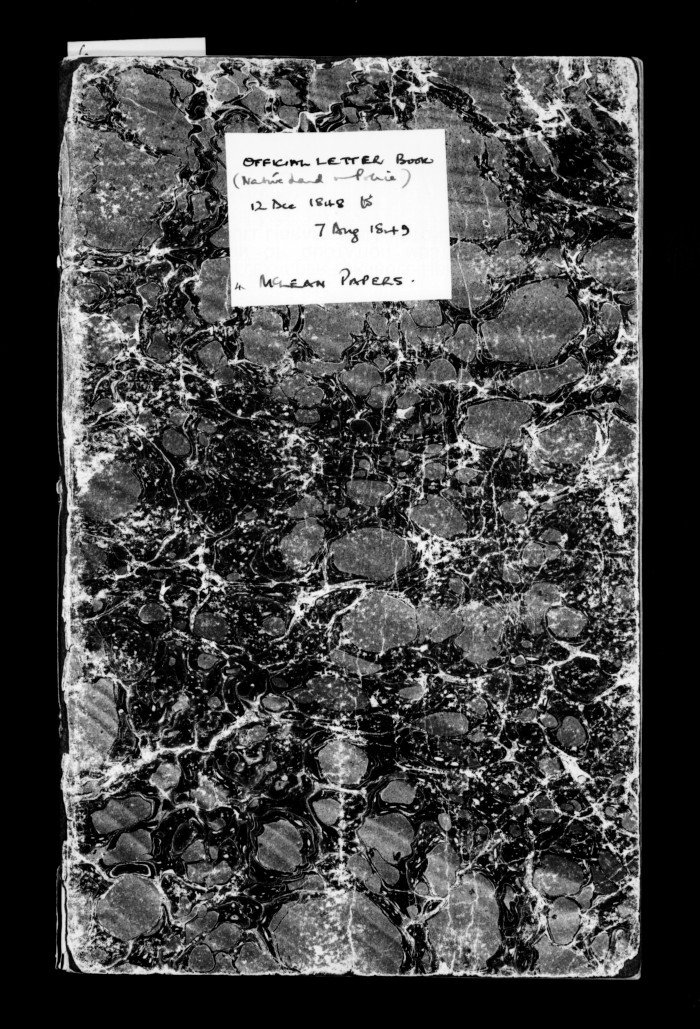 OFFICIAL LETTER BOOK
(Native Land & Police)
12 Dec 1848 to
7 Aug 1849
McLEAN PAPERS.